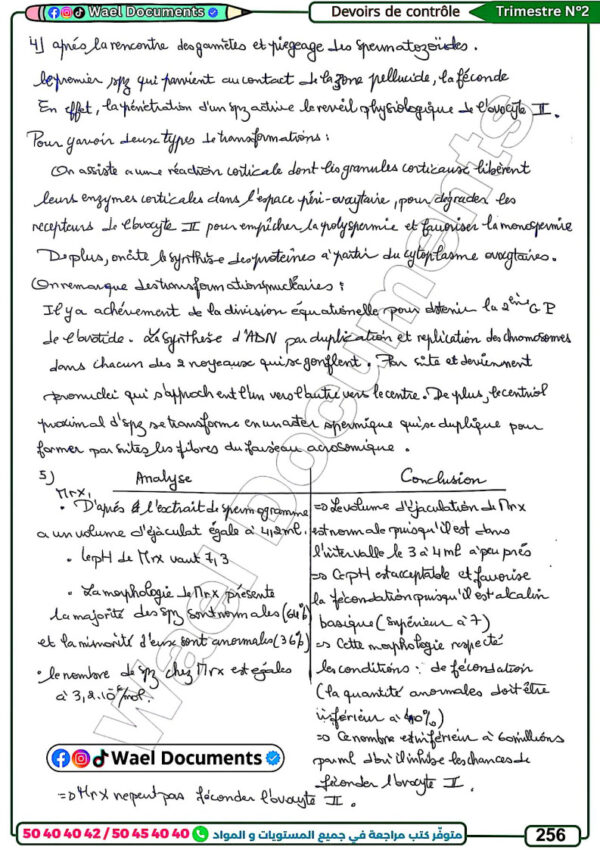 Wael Documents
Devoirs de contrôle
Trimestre N°2
4) après la rencontre des gamètes et piegeage des spermatozoïdes.
le premier spz qui parvient au contact de la zone pellucide, la féconde
En effet, la pénétration d'un spz active le reveil physiologique de l'ovocyte II.
Pour y avoir deux types de transformations :
On assiste a une réaction corticale dont les granules corticaux libèrent
leurs enzymes corticales dans l'espace péri-ovocytaire, pour dégrader les
recepteurs de l'ovocyte II pour empêcher la polyspermie et favoriser la monospermie
De plus, on cite le synthèse des proteines à partir du cytoplasme ovocytaires.
On remarque des transformations nucléaires :
Il y a achévement de la division équationelle pour obtenir la 2ème G P
de l'ovotide. La synthèse d'ADN par duplication et replication des chromosomes
dans chacun des 2 noyeaux qui se gonflent. Par site et deviennent
pronuclei qui s'approchent l'un vers l'autre vers le centre. De plus, le centriol
proximal d'spz se transforme en un aster spermique qui se duplique pour
former par suites les fibres du fuseau acrosomique.
5)
Analyse
Conclusion
Mr X,
• D'après l'extrait de spermogramme
a un volume d'éjaculat égale à 4,2ml.
• le pH de Mr X vaut 7,3
• La morphologie de Mr X présente
la majorité des spz sont normales (64%)
et la minorité d'eux sont anormales (36%)
• le nombre de spz chez Mr X est égales
à 3,2.10⁶/ml.
⇒ Le volume d'éjaculation de Mr X
est normale puisqu'il est dans
l'intervalle le 3 à 4ml à peu prés
⇒ Ce pH est acceptable et favorise
la fécondation puisqu'il est alcalin
basique (supérieur à 7)
⇒ Cette morphologie respecté
les conditions : de fécondation
(la quantité anormales doit être
inférieur à 40%)
⇒ Ce nombre est inférieur à 60 millions
par ml d'où il inhibe les chances de
féconder l'ovocyte II.
Wael Documents
⇒ Mr X ne peut pas féconder l'ovocyte II.
Wael Documents
50 40 40 42 / 50 45 40 40
متوفّر كتب مراجعة في جميع المستويات و المواد
256